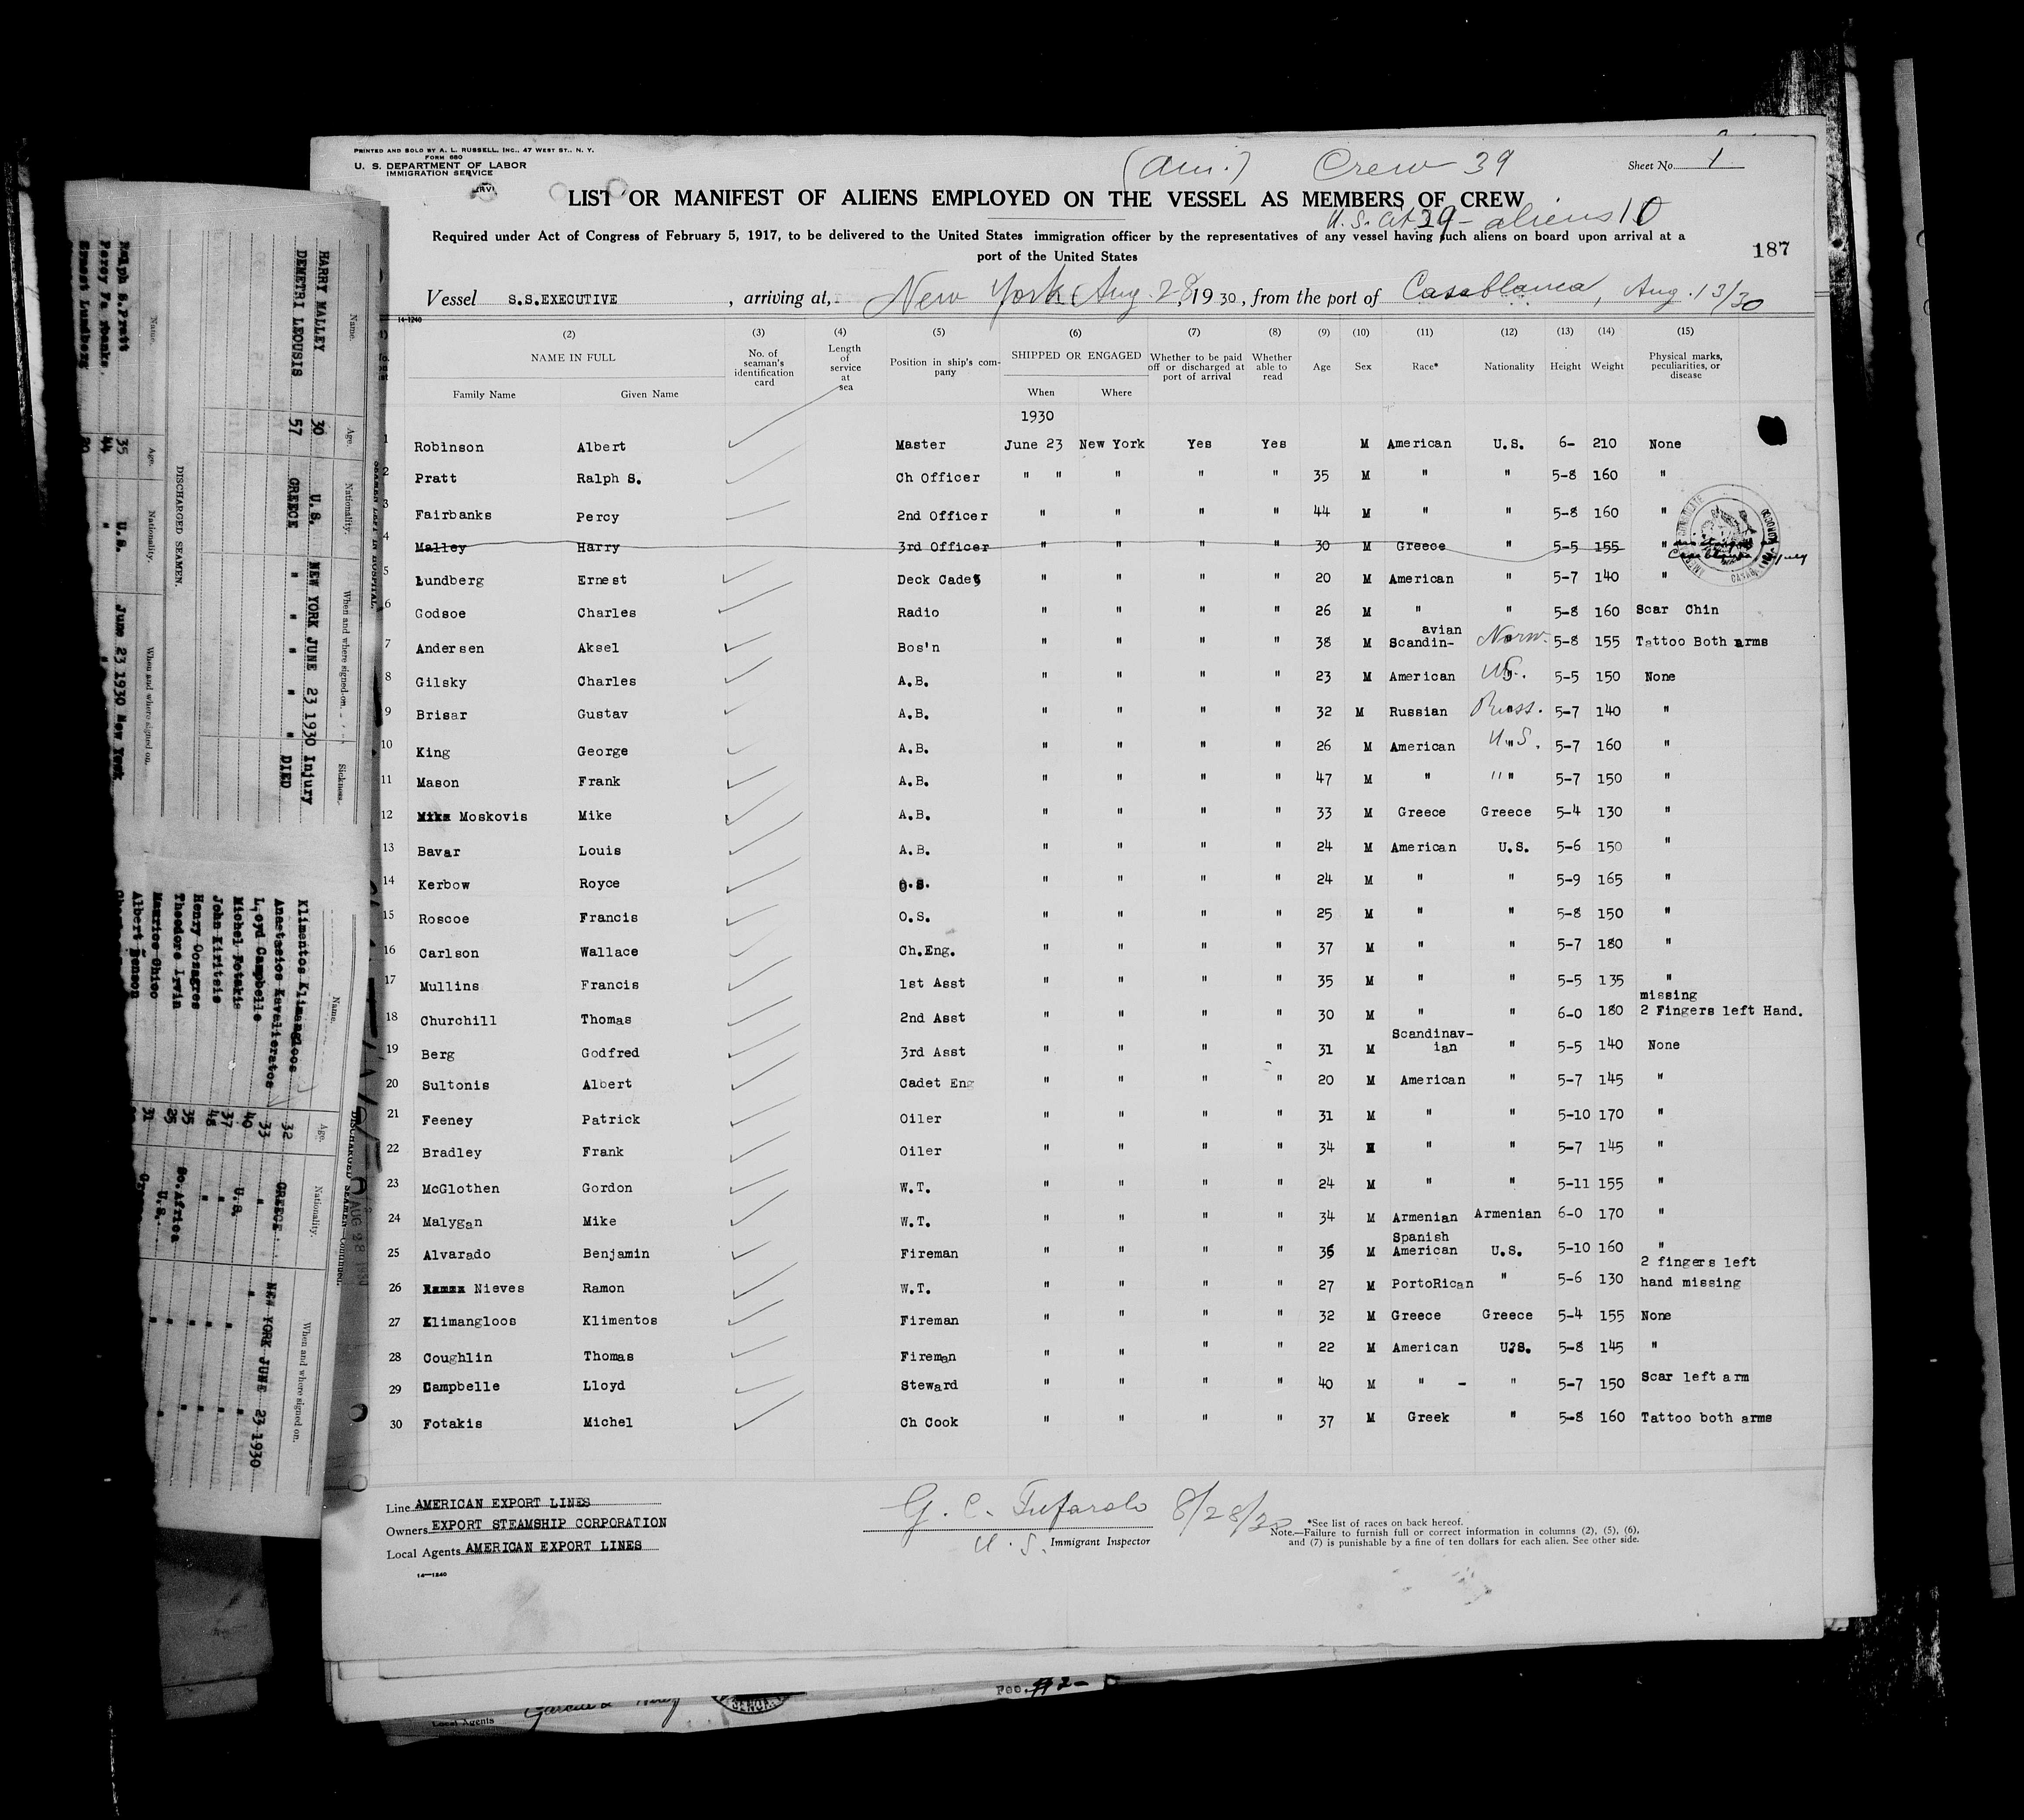 PRINTED AND SOLD BY A. L. RUSSELL, INC., 47 WEST ST., N. Y.
FORM 680
U. S. DEPARTMENT OF LABOR
IMMIGRATION SERVICE
(Am.) Crew 39
Sheet No. 1
LIST OR MANIFEST OF ALIENS EMPLOYED ON THE VESSEL AS MEMBERS OF CREW
U.S. cit 29 - aliens 10
Required under Act of Congress of February 5, 1917, to be delivered to the United States immigration officer by the representatives of any vessel having such aliens on board upon arrival at a
port of the United States
187
Vessel S.S.EXECUTIVE, arriving at, New York, Aug. 28 1930, from the port of Casablanca, Aug. 13/30
14-1240
(2) (3) (4) (5) (6) (7) (8) (9) (10) (11) (12) (13) (14) (15)
NAME IN FULL No. of seaman's identification card Length of service at sea Position in ship's company SHIPPED OR ENGAGED Whether to be paid off or discharged at port of arrival Whether able to read Age Sex Race* Nationality Height Weight Physical marks, peculiarities, or disease
Family Name Given Name When Where
1930
1 Robinson Albert Master June 23 New York Yes Yes M American U.S. 6- 210 None
2 Pratt Ralph S. Ch Officer " " " " " 35 M " " 5-8 160 "
3 Fairbanks Percy 2nd Officer " " " " 44 M " " 5-8 160 "
4 Malley Harry 3rd Officer " " " " 30 M Greece " 5-5 155 "
5 Lundberg Ernest Deck Cadet " " " " 20 M American " 5-7 140 "
6 Godsoe Charles Radio " " " " 26 M " " 5-8 160 Scar Chin
7 Andersen Aksel Bos'n " " " " 38 M Scandin-avian Norw. 5-8 155 Tattoo Both arms
8 Gilsky Charles A.B. " " " " 23 M American U.S. 5-5 150 None
9 Brisar Gustav A.B. " " " " 32 M Russian Russ. 5-7 140 "
10 King George A.B. " " " " 26 M American U.S. 5-7 160 "
11 Mason Frank A.B. " " " " 47 M " " 5-7 150 "
12 Mike Moskovis Mike A.B. " " " " 33 M Greece Greece 5-4 130 "
13 Bavar Louis A.B. " " " " 24 M American U.S. 5-6 150 "
14 Kerbow Royce O.S. " " " " 24 M " " 5-9 165 "
15 Roscoe Francis O.S. " " " " 25 M " " 5-8 150 "
16 Carlson Wallace Ch.Eng. " " " " 37 M " " 5-7 180 "
17 Mullins Francis 1st Asst " " " " 35 M " " 5-5 135 "
18 Churchill Thomas 2nd Asst " " " " 30 M " " 6-0 180 missing 2 Fingers left Hand.
19 Berg Godfred 3rd Asst " " " " 31 M Scandinav-ian " 5-5 140 None
20 Sultonis Albert Cadet Eng " " " " 20 M American " 5-7 145 "
21 Feeney Patrick Oiler " " " " 31 M " " 5-10 170 "
22 Bradley Frank Oiler " " " " 34 M " " 5-7 145 "
23 McGlothen Gordon W.T. " " " " 24 M " " 5-11 155 "
24 Malygan Mike W.T. " " " " 34 M Armenian Armenian 6-0 170 "
25 Alvarado Benjamin Fireman " " " " 36 M Spanish American U.S. 5-10 160 "
26 Nieves Ramon W.T. " " " " 27 M PortoRican " 5-6 130 2 fingers left hand missing
27 Klimangloos Klimentos Fireman " " " " 32 M Greece Greece 5-4 155 None
28 Coughlin Thomas Fireman " " " " 22 M American U.S. 5-8 145 "
29 Campbelle Lloyd Steward " " " " 40 M " - " 5-7 150 Scar left arm
30 Fotakis Michel Ch Cook " " " " 37 M Greek " 5-8 160 Tattoo both arms
Line AMERICAN EXPORT LINES
Owners EXPORT STEAMSHIP CORPORATION
Local Agents AMERICAN EXPORT LINES
14—1240
8/28/30
U. S. Immigrant Inspector
*See list of races on back hereof.
Note.—Failure to furnish full or correct information in columns (2), (5), (6),
and (7) is punishable by a fine of ten dollars for each alien. See other side.
Name. Age. Nationality. When and where signed on. Sickness.
HARRY MALLEY 30 U.S. NEW YORK JUNE 23 1930 Injury
DEMETRI LEOUSIS 57 GREECE " " " " DIED
DISCHARGED SEAMEN.
Name. Age. Nationality. When and where signed on.
Ralph S.Pratt 35 U.S. June 23 1930 New York
Percy Fairbanks. 44 " "
Ernest Lundberg 20
DISCHARGED SEAMEN Continued.
Name. Age. Nationality. When and where signed on.
Klimentos Klimangloos 32 GREECE NEW YORK JUNE 23 1930
Anastasios Kavalieratos 33 " "
Lloyd Campbelle 40 U.S.
Michel Fotakis 37 " "
John Kiriteis 48 " "
Henry Ossagros 35 "
Theodore Irvin 25 So.Africa "
Maurice Chico 31 U.S. "
Albert Benson
AUG 28 1930
Local Agents
Fee.